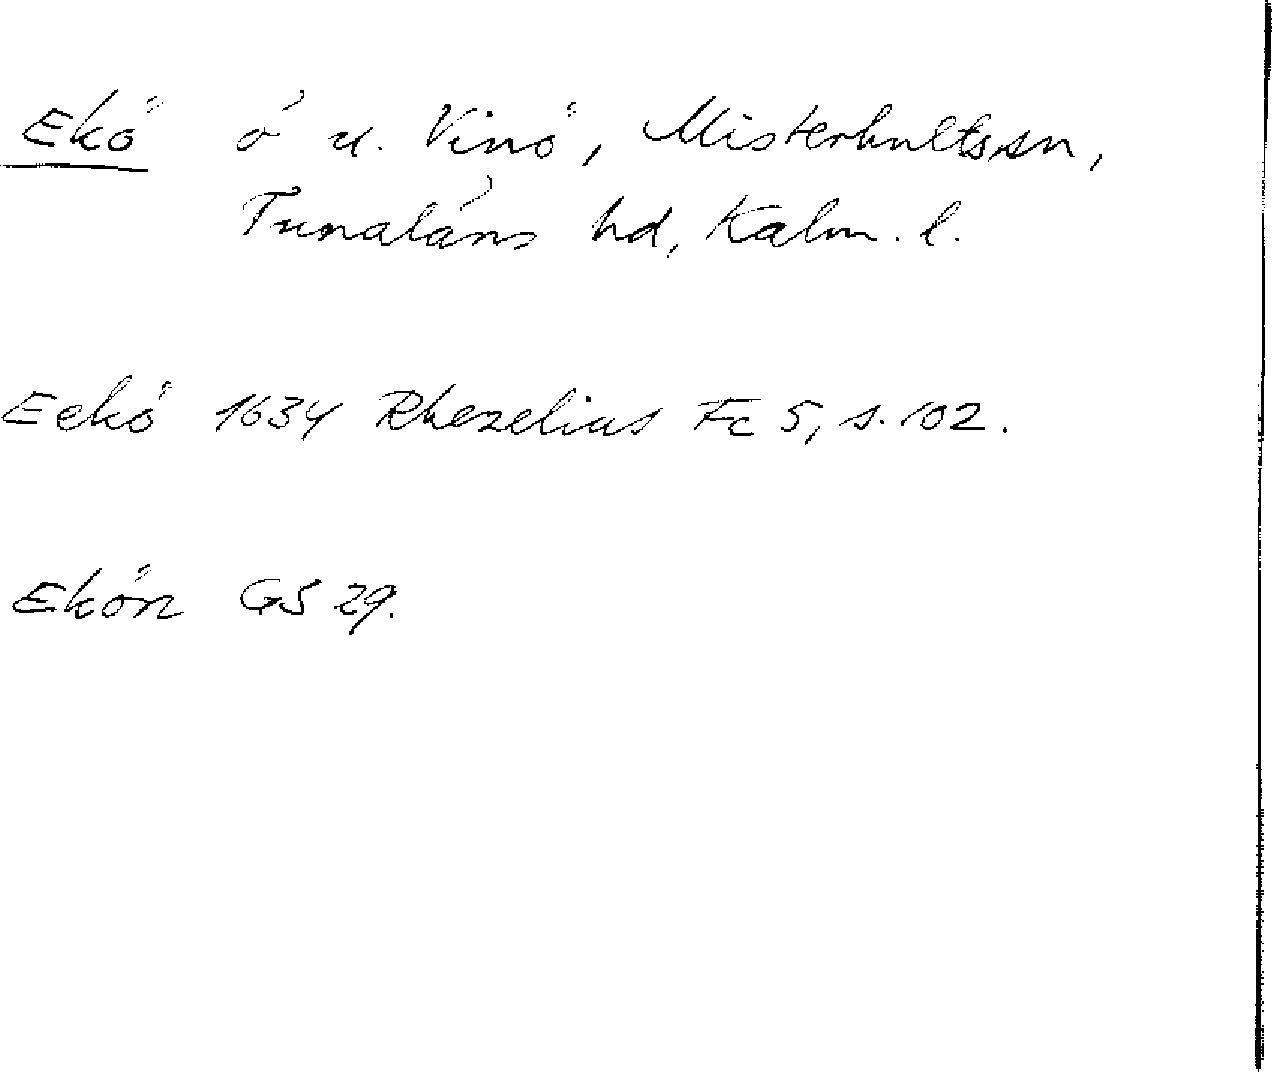 Ekö ö u. Vinö, Misterhults sn,
Tunaläns hd, Kalm. l.
Eckö 1634 Rhezelius Fc 5, s. 102.
Ekön GS 29.